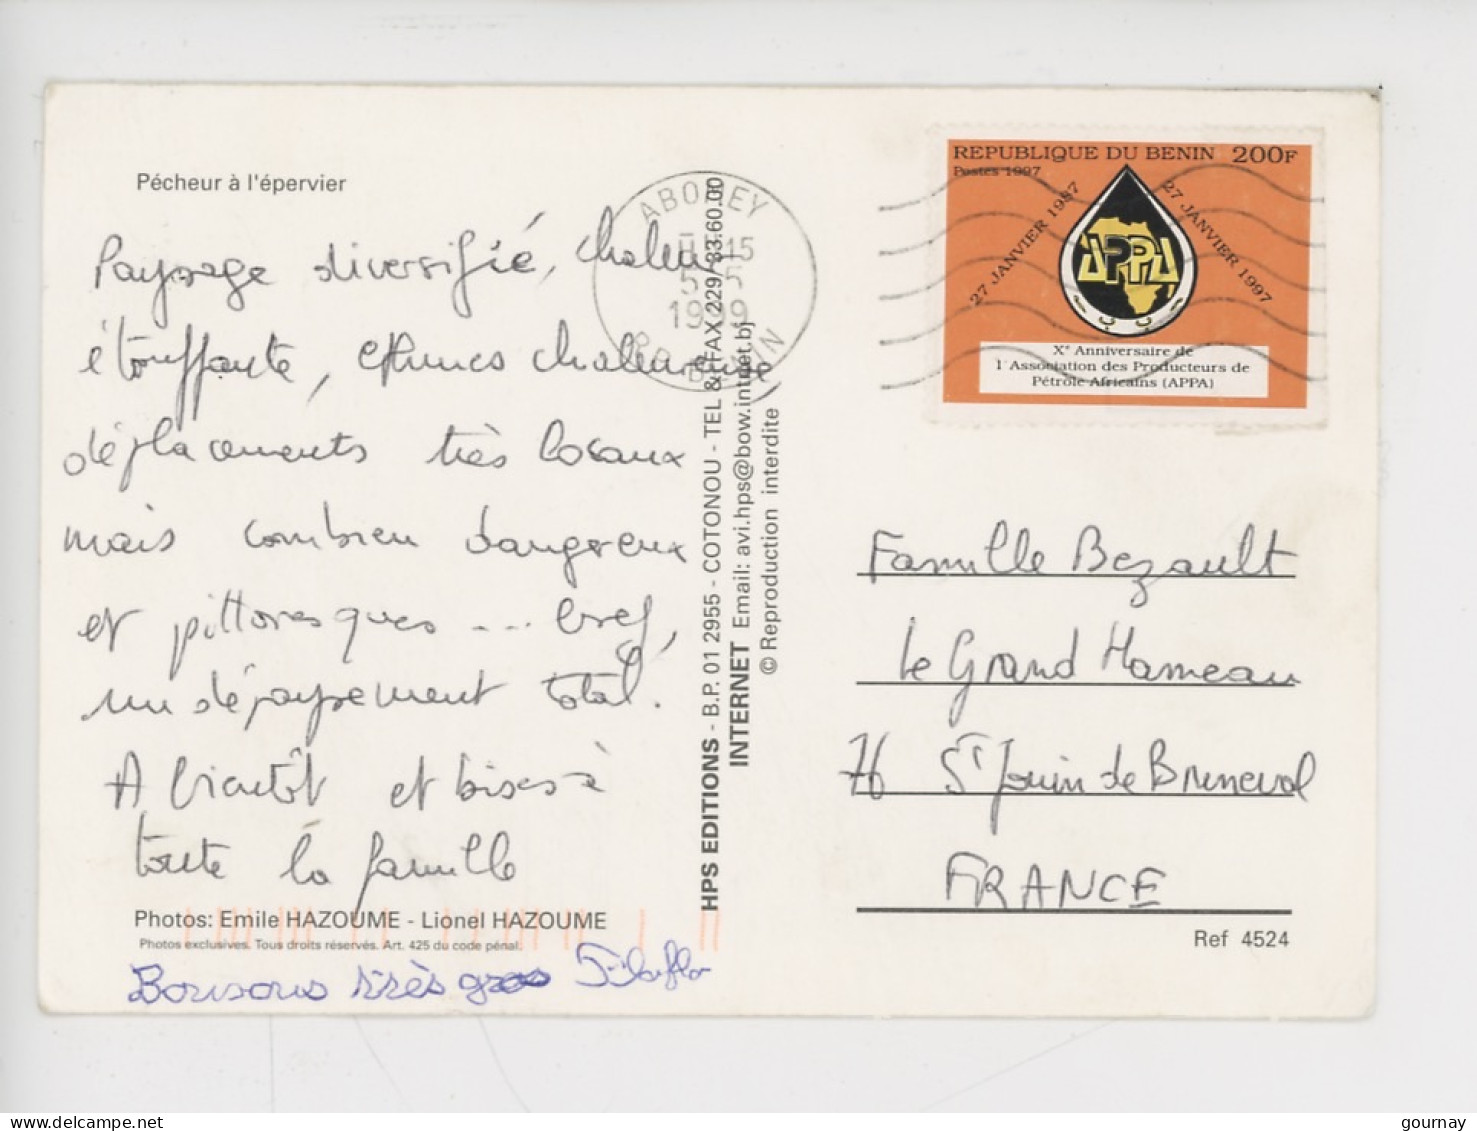 Pécheur à l'épervier
Paysage diversifié, chaleur
étouffante, ethnies chaleureuse,
déplacements très locaux
mais combien dangereux
et pittoresques ... bref,
un dépaysement total.
A bientôt et bises à
toute la famille
Photos: Emile HAZOUME - Lionel HAZOUME
Photos exclusives. Tous droits réservés. Art. 425 du code pénal.
Bonsons très gros
HPS EDITIONS - B.P. 01 2955 - COTONOU - TEL & FAX 229/ 33.60.00
INTERNET Email: avi.hps@bow.intnet.bj
© Reproduction interdite
ABOMEY
15
5 - 5
1999
RP BENIN
REPUBLIQUE DU BENIN 200F
Postes 1997
27 JANVIER 1987
27 JANVIER 1997
APPA
X° Anniversaire de
l'Association des Producteurs de
Pétrole Africains (APPA)
Famille Bezault
le Grand Hameau
76 St Jouin de Bruneval
FRANCE
Ref 4524
gournay